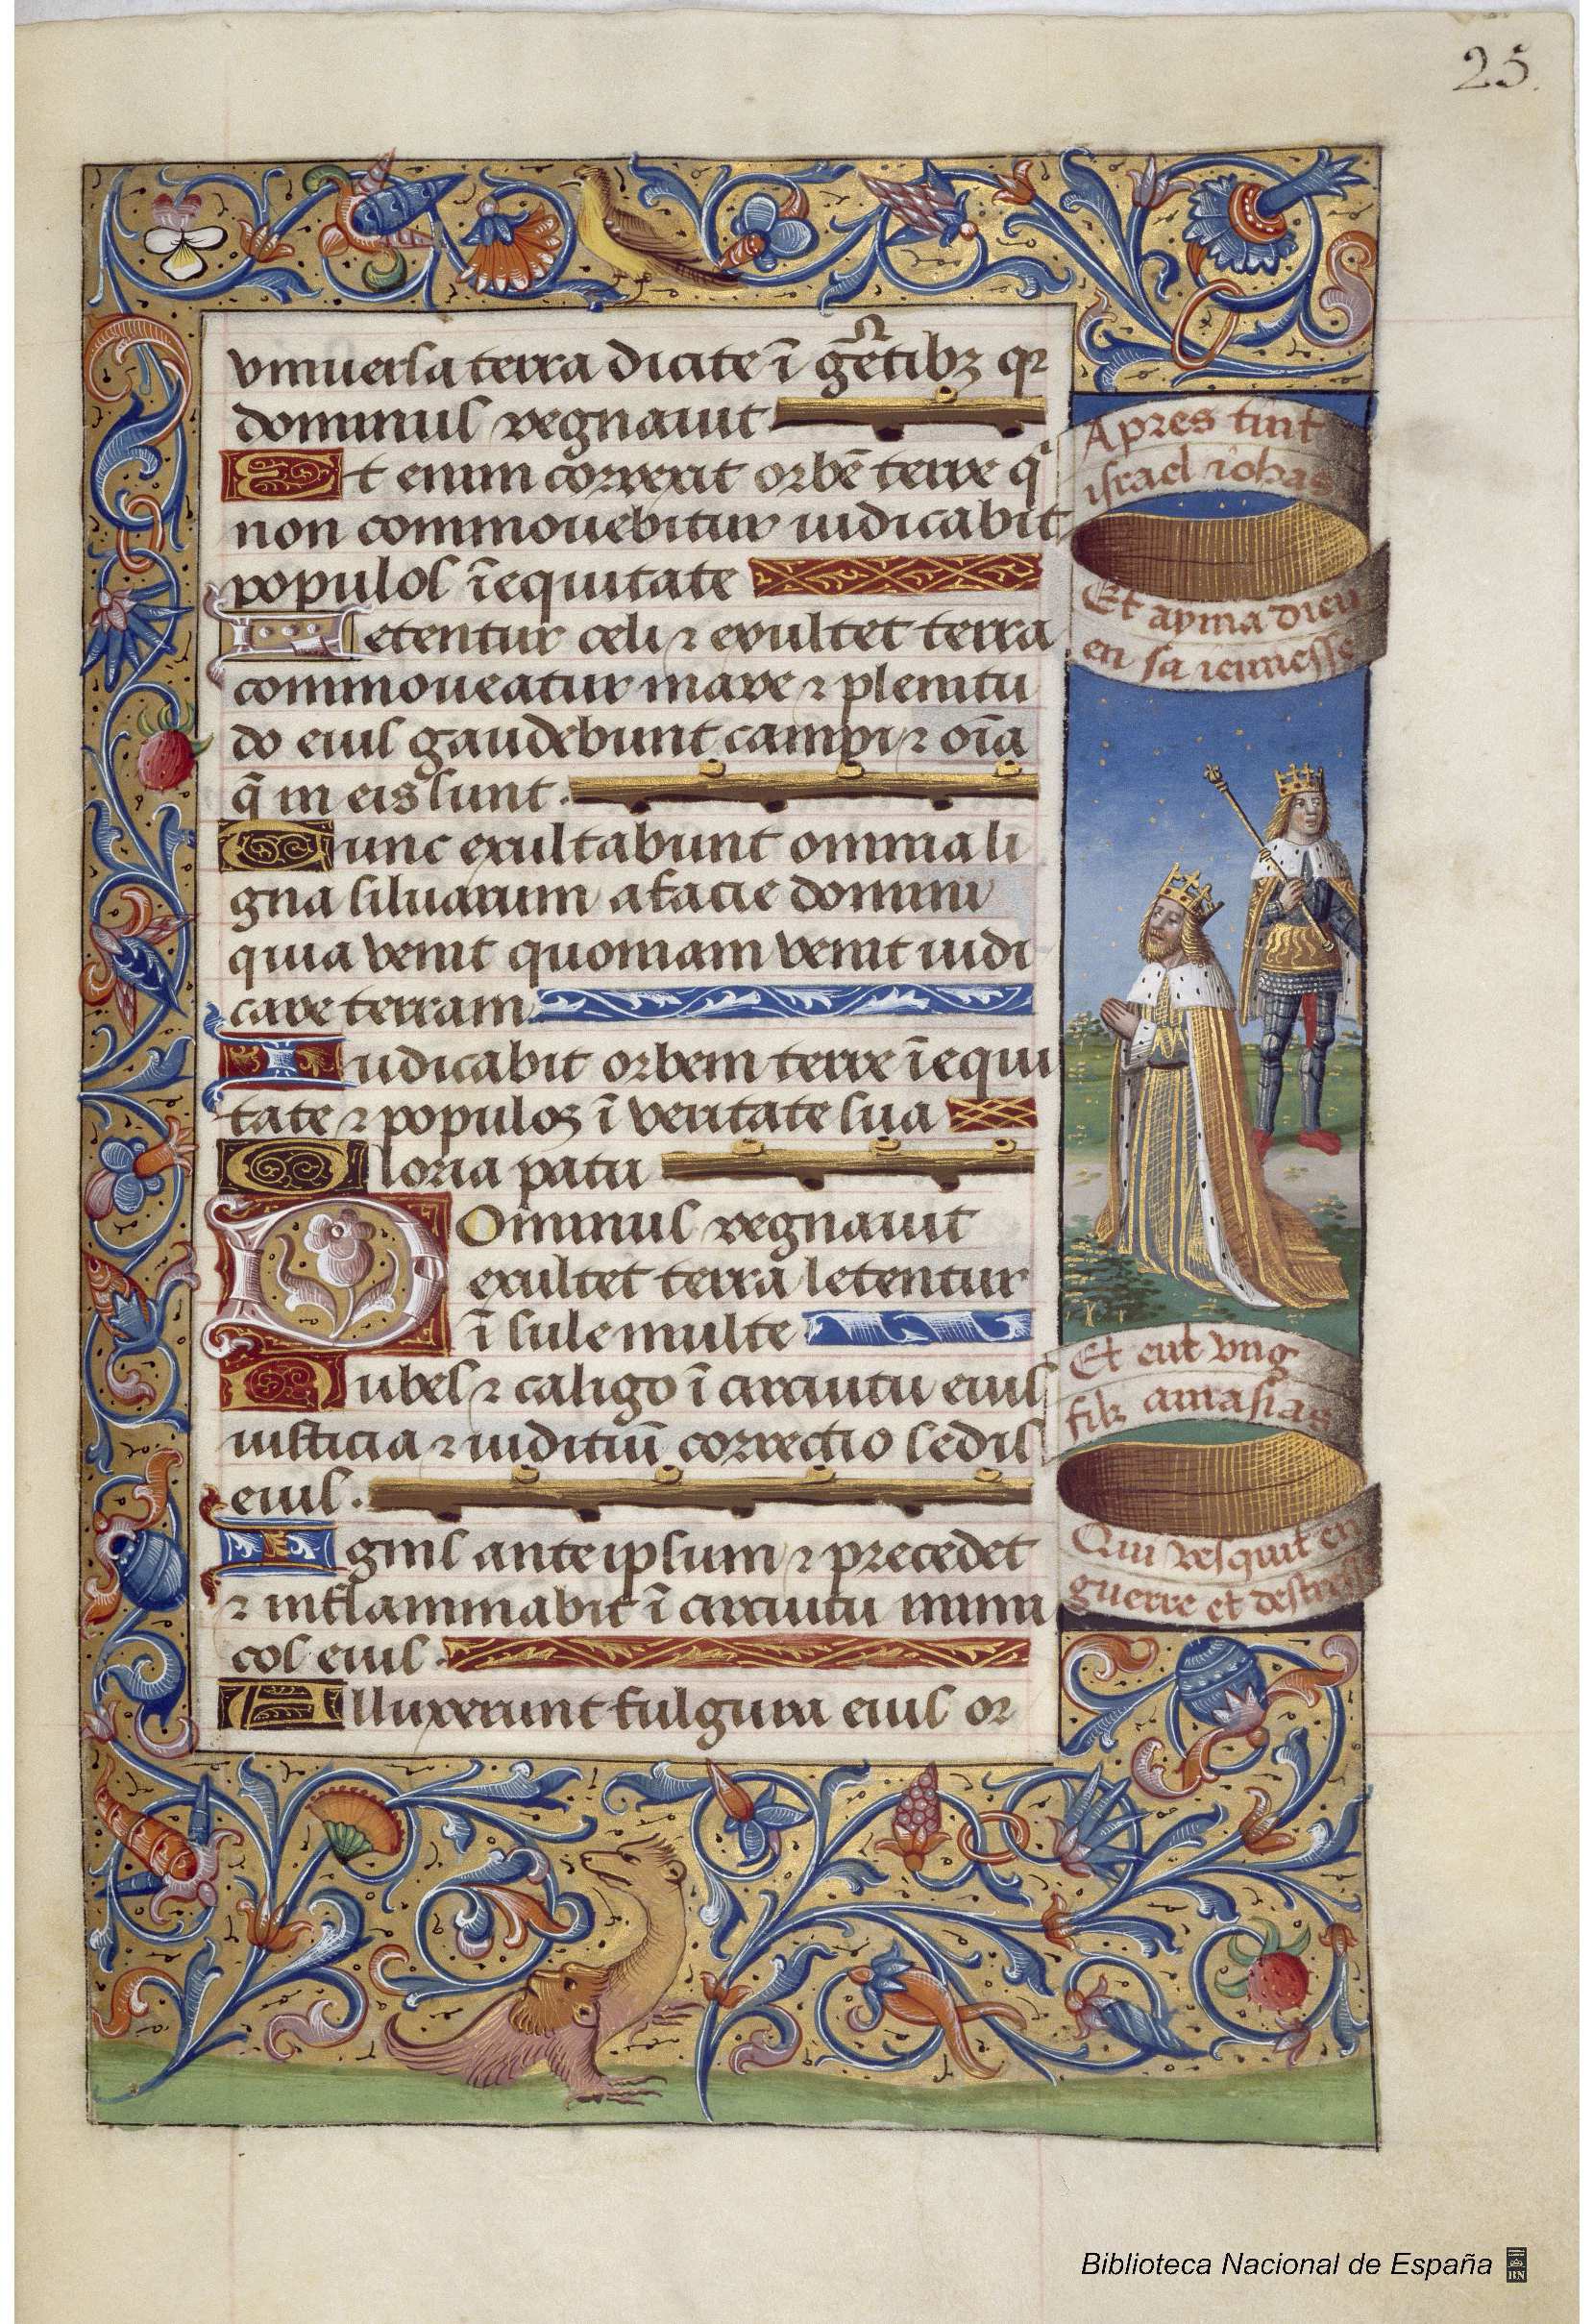 25.
vniuersa terra dicite ī gētibꝫ qꝛ
dominus regnauit
Et enim correxit orbē terre q
non commouebitur iudicabit
populos īequitate
Letentur celi ⁊ exultet terra
commoueatur mare ⁊ plenitu
do eius gaudebunt campi ⁊ oīa
q̄ in eis sunt.
Tunc exultabunt omnia li
gna siluarum a facie domini
quia venit quoniam venit iudi
care terram
Iudicabit orbem terre īequi
tate ⁊ populos ī veritate sua
Gloria patri
Dominus regnauit
exultet terra letentur
īsule multe
Nubes ⁊ caligo ī circuitu eius
iusticia ⁊ iuditiū correctio sedis
eius.
Ignis ante ipsum ⁊ precedet
⁊ inflammabit ī circuitu inimi
cos eius.
Alluxerunt fulgura eius or
Apres tint
israel iohas
Et ayma dieu
en sa ieunesse
Et eut vng
filz amasias
Qui vesquit en
guerre et destresse
Biblioteca Nacional de España
BN